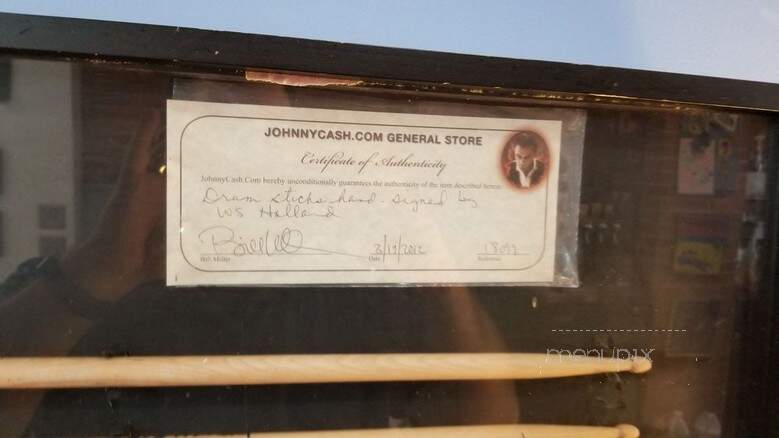 JOHNNYCASH.COM GENERAL STORE
Certificate of Authenticity
JohnnyCash.Com hereby unconditionally guarantees the authenticity of the item described hereon:
Drum sticks hand-signed by
WS Holland
3/19/2012
Bill Miller Date Reference
menupix